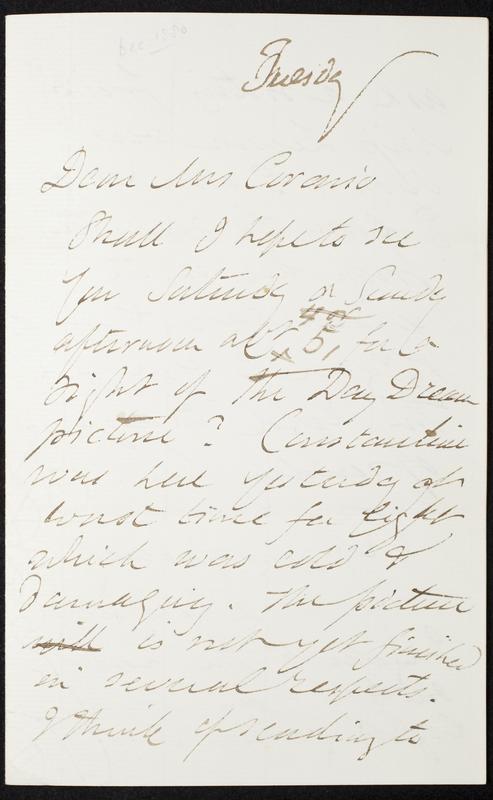 Dec 1880
Tuesday
Dear Mrs Cavasso
Shall I hope to see
you Saturday or Sunday
afternoon abt 4 or 5, for a
sight of the Day Dream
picture? Constantine
was here yesterday at
worst time for light
which was cold &
damaging. The picture
will is not yet finished
in several respects.
I think of sending to